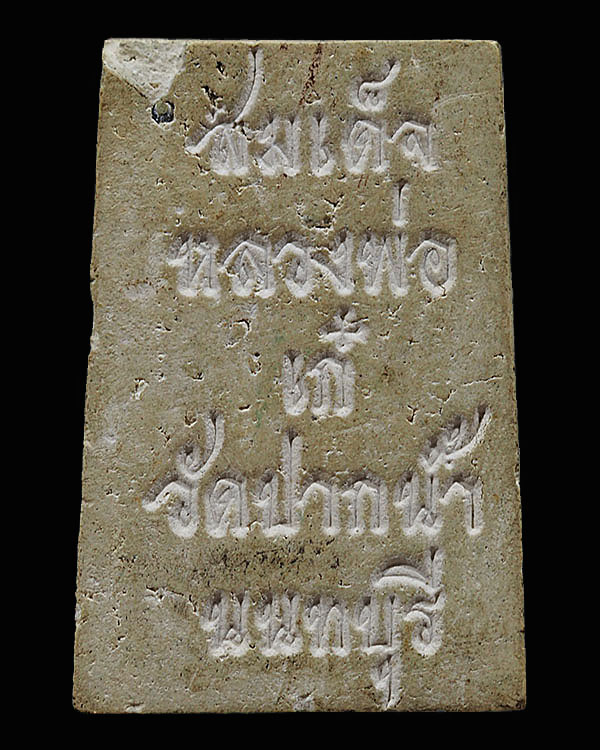 สมเด็จ
หลวงพ่อ
เก๋
วัดปากน้ำ
นนทบุรี